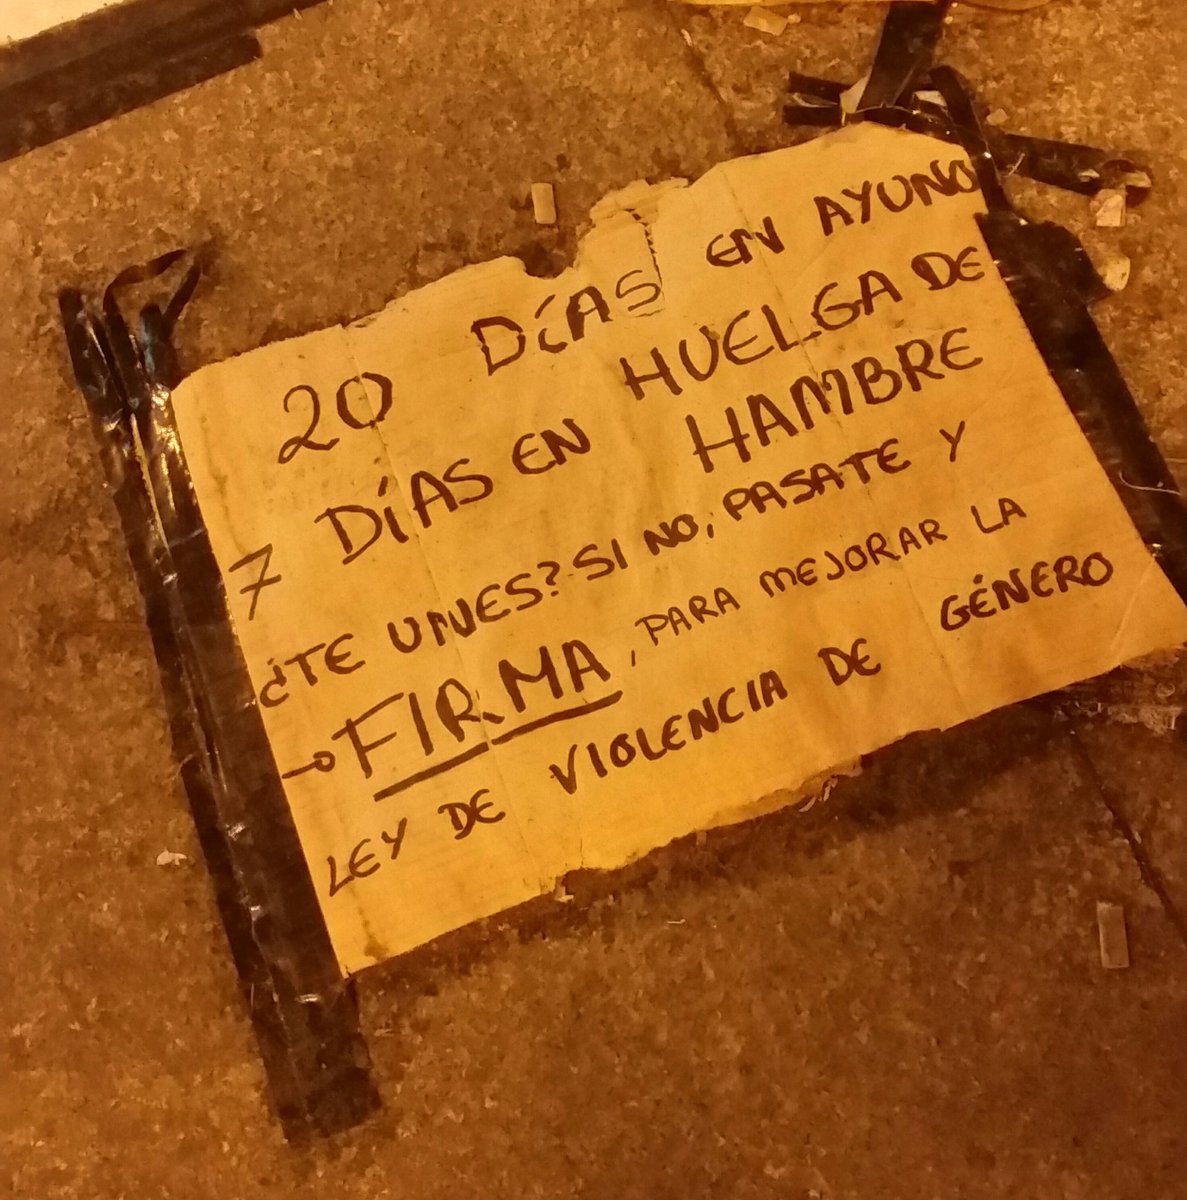 20 DÍAS EN AYUNO
7 DÍAS EN HUELGA DE
HAMBRE
¿TE UNES? SI NO, PASATE Y
→ FIRMA, PARA MEJORAR LA
LEY DE VIOLENCIA DE GÉNERO